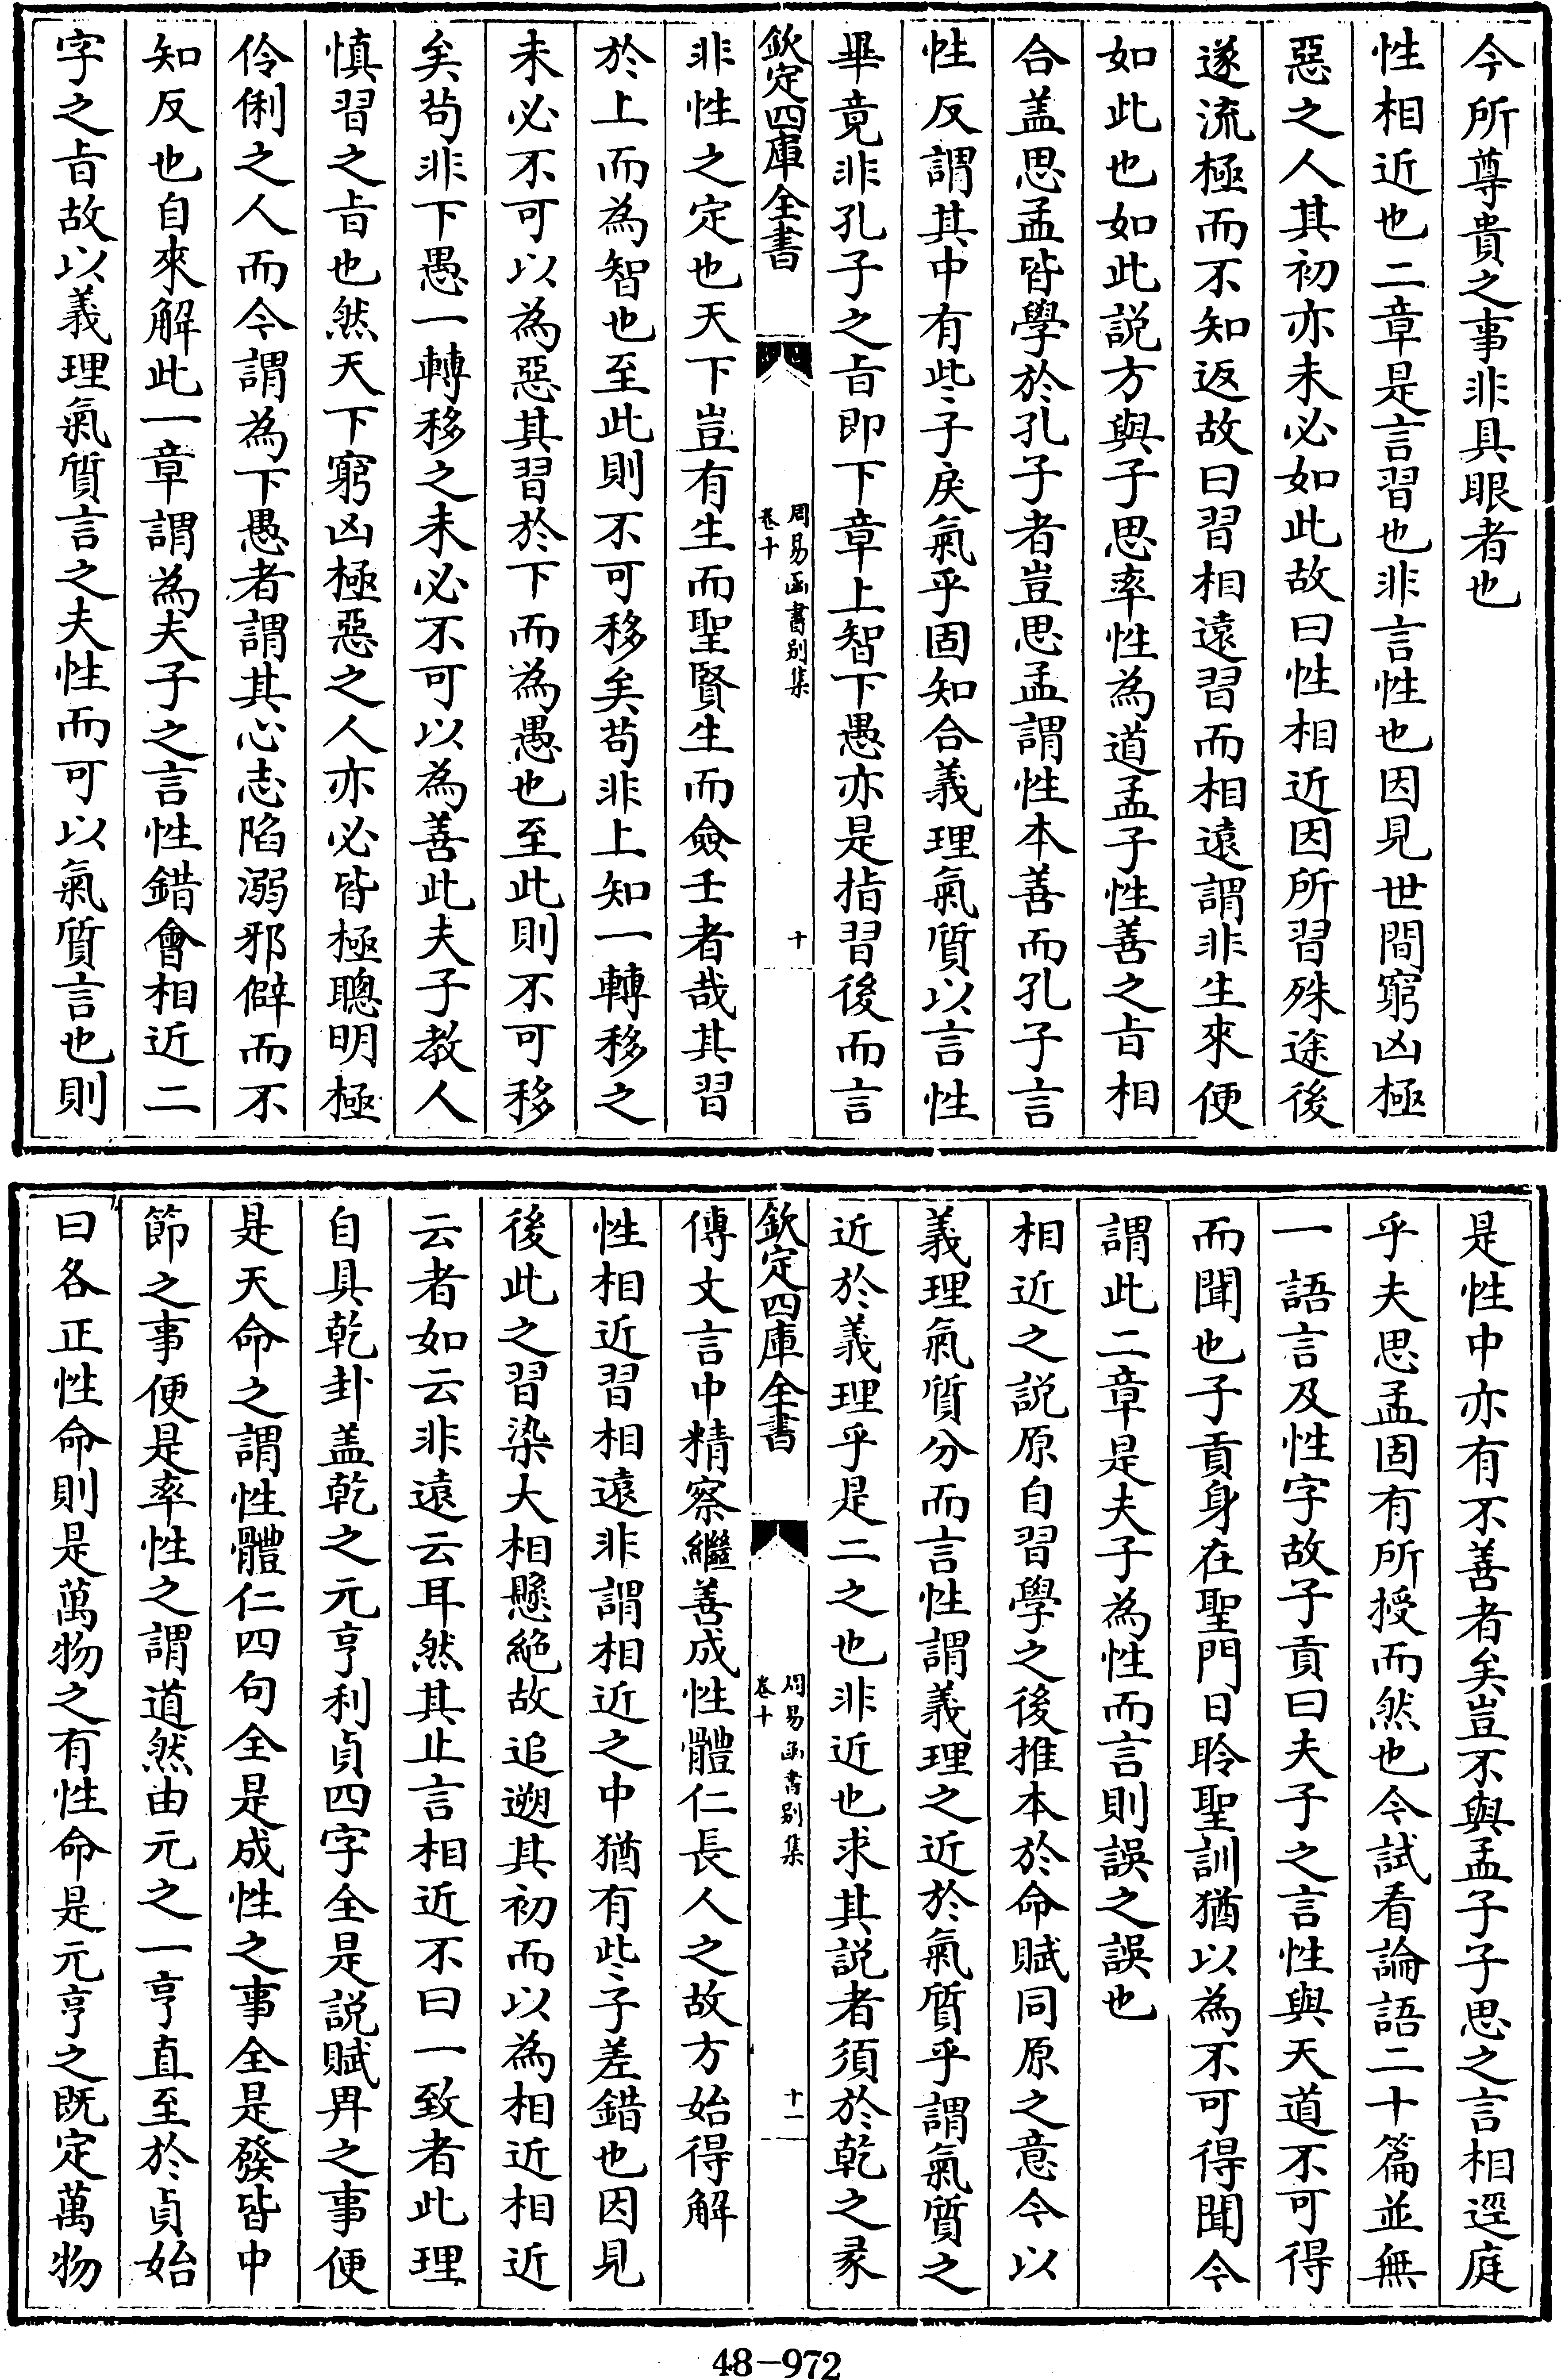 今所尊貴之事非具眼者也
性相近也二章是言習也非言性也因見世間窮凶極
惡之人其初亦未必如此故曰性相近因所習殊途後
遂流極而不知返故曰習相遠習而相遠謂非生來便
如此也如此説方與子思率性為道孟子性善之㫖相
合盖思孟皆學於孔子者豈思孟謂性本善而孔子言
性反謂其中有些子戾氣乎固知合義理氣質以言性
畢竟非孔子之㫖即下章上智下愚亦是指習後而言
欽定四庫全書
周易函書别集
卷十
十
非性之定也天下豈有生而聖賢生而僉壬者哉其習
於上而為智也至此則不可移矣苟非上知一轉移之
未必不可以為惡其習於下而為愚也至此則不可移
矣苟非下愚一轉移之未必不可以為善此夫子教人
慎習之㫖也然天下窮凶極惡之人亦必皆極聰明極
伶俐之人而今謂為下愚者謂其心志陷溺邪僻而不
知反也自來解此一章謂為夫子之言性錯會相近二
字之㫖故以義理氣質言之夫性而可以氣質言也則
是性中亦有不善者矣豈不與孟子子思之言相逕庭
乎夫思孟固有所授而然也今試看論語二十篇並無
一語言及性字故子貢曰夫子之言性與天道不可得
而聞也子貢身在聖門日聆聖訓猶以為不可得聞今
謂此二章是夫子為性而言則誤之誤也
相近之説原自習學之後推本於命賦同原之意今以
義理氣質分而言性謂義理之近於氣質乎謂氣質之
近於義理乎是二之也非近也求其説者須於乾之彖
欽定四庫全書
周易函書别集
卷十
十一
傳文言中精察繼善成性體仁長人之故方始得解
性相近習相遠非謂相近之中猶有些子差錯也因見
後此之習染大相懸絶故追遡其初而以為相近相近
云者如云非遠云耳然其止言相近不曰一致者此理
自具乾卦盖乾之元亨利貞四字全是説賦畀之事便
是天命之謂性體仁四句全是成性之事全是發皆中
節之事便是率性之謂道然由元之一亨直至於貞始
曰各正性命則是萬物之有性命是元亨之既定萬物
48-972